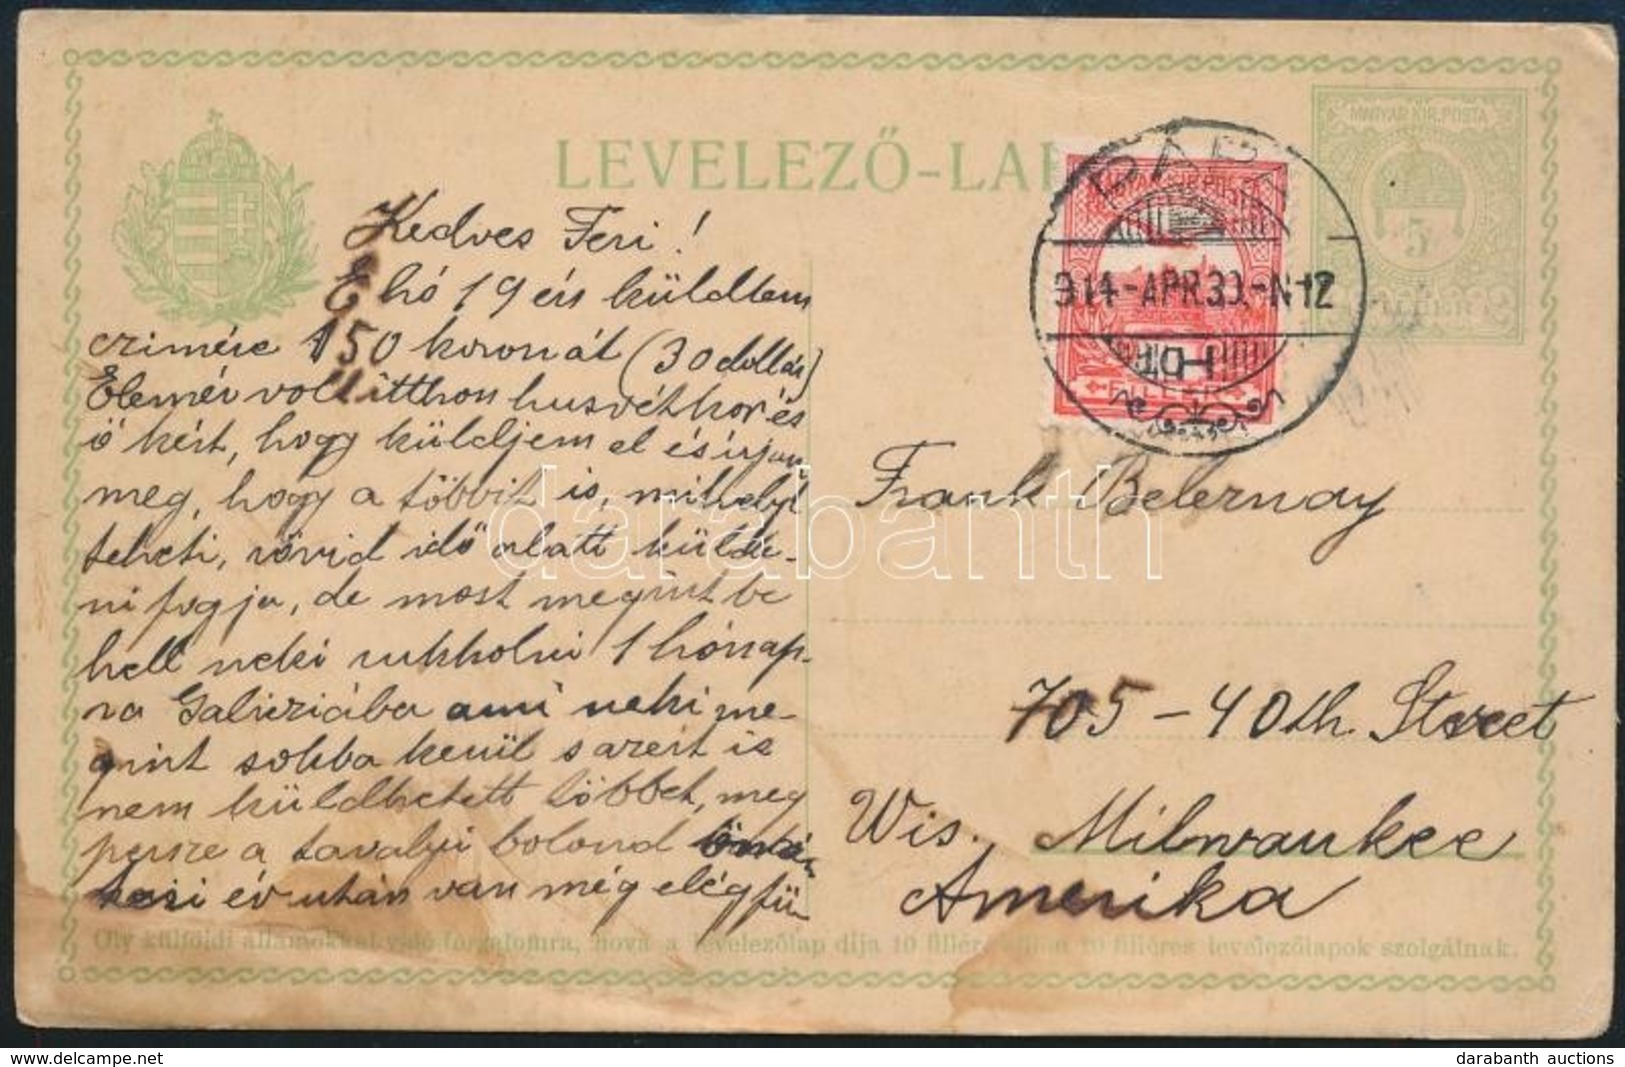 MAGYAR KIR. POSTA
LEVELEZŐ-LAP
5
PÁPA
914-APR.30.-N12
Kedves Feri!
E hó 19 én küldtem
czimére 150 koronát (30 dollár)
Elemér volt itthon husvétkor és
ő kért, hogy küldjem el és írjam
meg, hogy a többit is, mihelyt
teheti, rövid idő alatt külde-
ni fogja, de most megint be
kell neki rukkolni 1 hónap-
ra Galicziába ami neki me-
gint sokba kerül s azért is
nem küldhetett többet, meg
persze a tavalyi bolond
évután van még elég fü-
Frank Belernay
705-40th. Street
Wis., Milwaukee
Amerika
Oly külföldi államokkal való forgalomra, hova a levelezőlap díja 10 fillér, 10 filléres levelezőlapok szolgálnak.
darabanth
darabanth auctions
www.delcampe.net